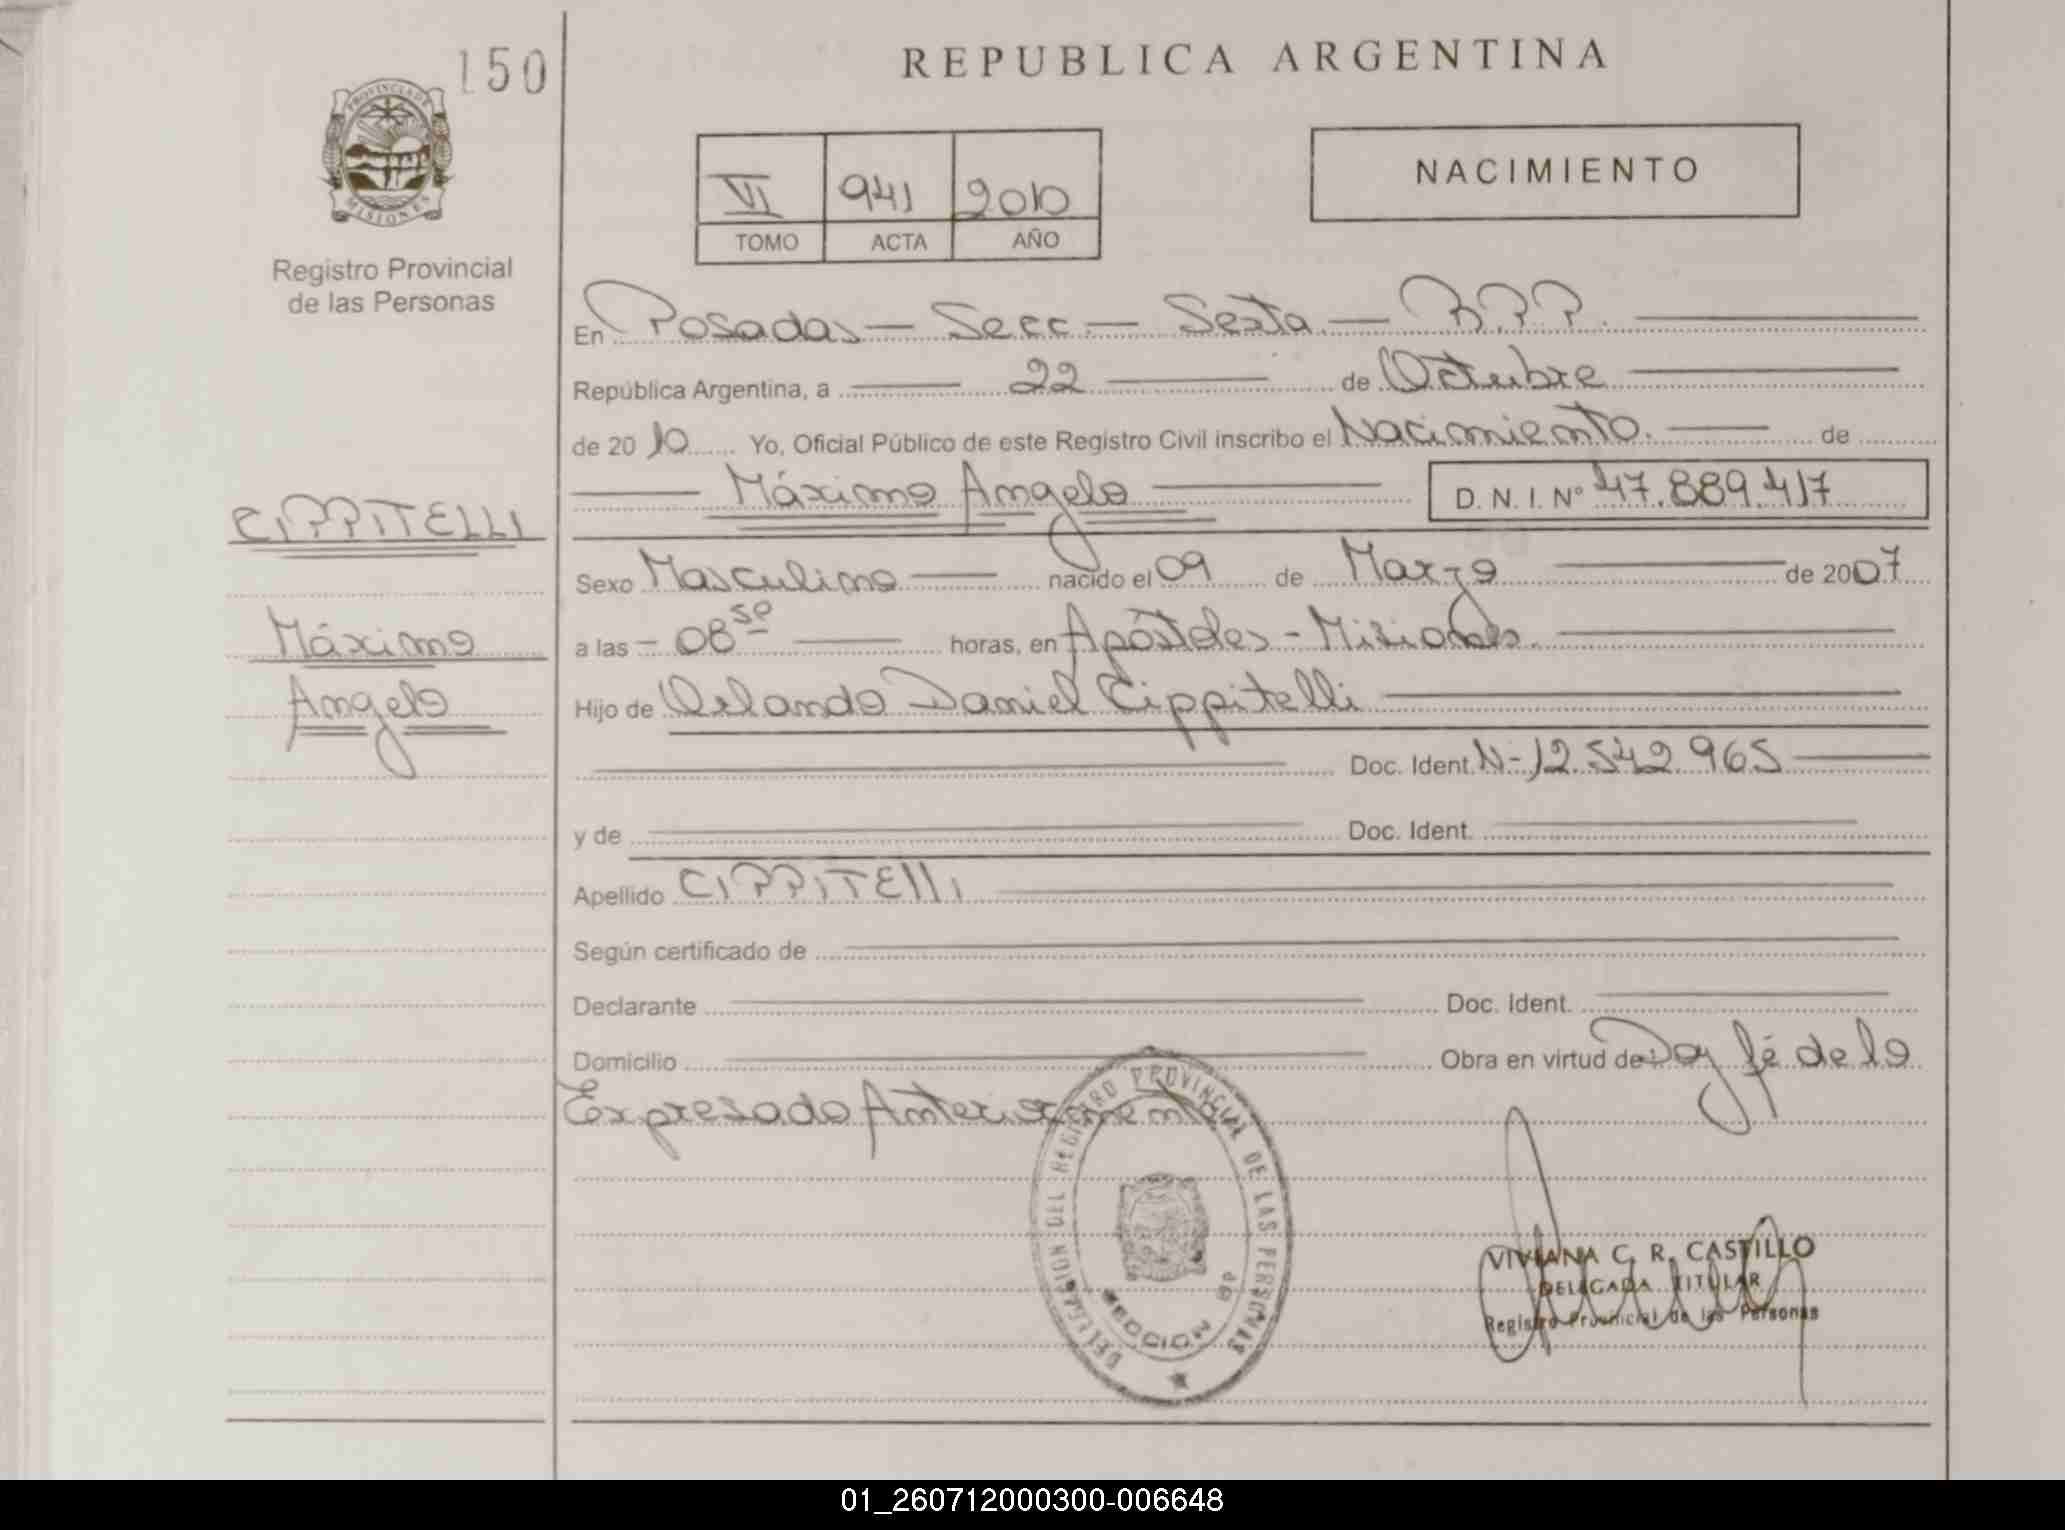 150
REPUBLICA ARGENTINA
PROVINCIA DE
MISIONES
Registro Provincial
de las Personas
VI 941 2010
TOMO ACTA AÑO
NACIMIENTO
En Posadas — Secc — Sexta — B.P.P.
República Argentina, a 22 de Octubre
de 2010 Yo, Oficial Público de este Registro Civil inscribo el Nacimiento. de
Máximo Angelo D. N. I. Nº 47.889.417
CIPPITELLI
Máximo
Angelo
Sexo Masculino nacido el 09 de Marzo de 2007
a las 08 50 horas, en Apóstoles - Misiones.
Hijo de Orlando Daniel Cippitelli
Doc. Ident. N- 12.542.965
y de Doc. Ident.
Apellido CIPPITELLI
Según certificado de
Declarante Doc. Ident.
Domicilio Obra en virtud de: Doy fé de lo
Expresado Anteriormente
DELEGACION DEL REGISTRO PROVINCIAL DE LAS PERSONAS
SECCION
VIVIANA C. R. CASTILLO
DELEGADA TITULAR
Registro Provincial de las Personas
01_260712000300-006648